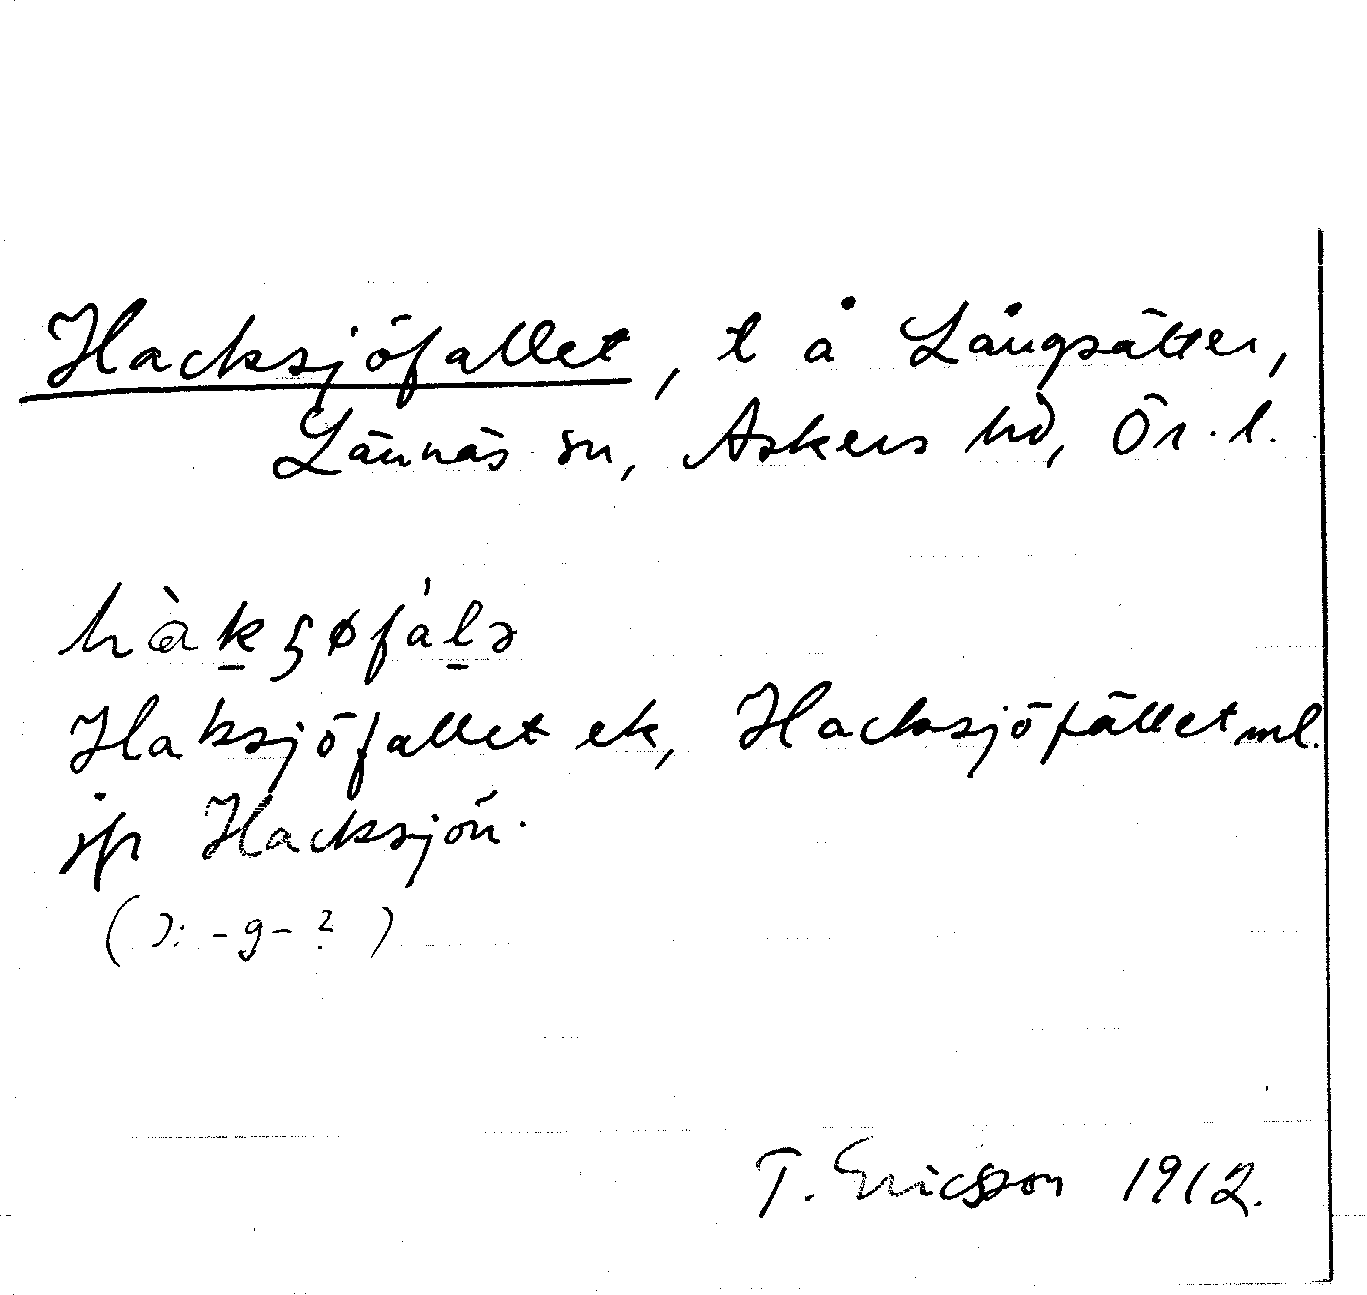 Hacksjöfallet, t å Långsätter,
Lännäs sn, Askers hd, Ör. l.
hàkşøfálə
Haksjöfallet ek, Hacksjöfället ml.
jfr Hacksjön.
(ɔ: -g- ?)
T. Ericsson 1912.